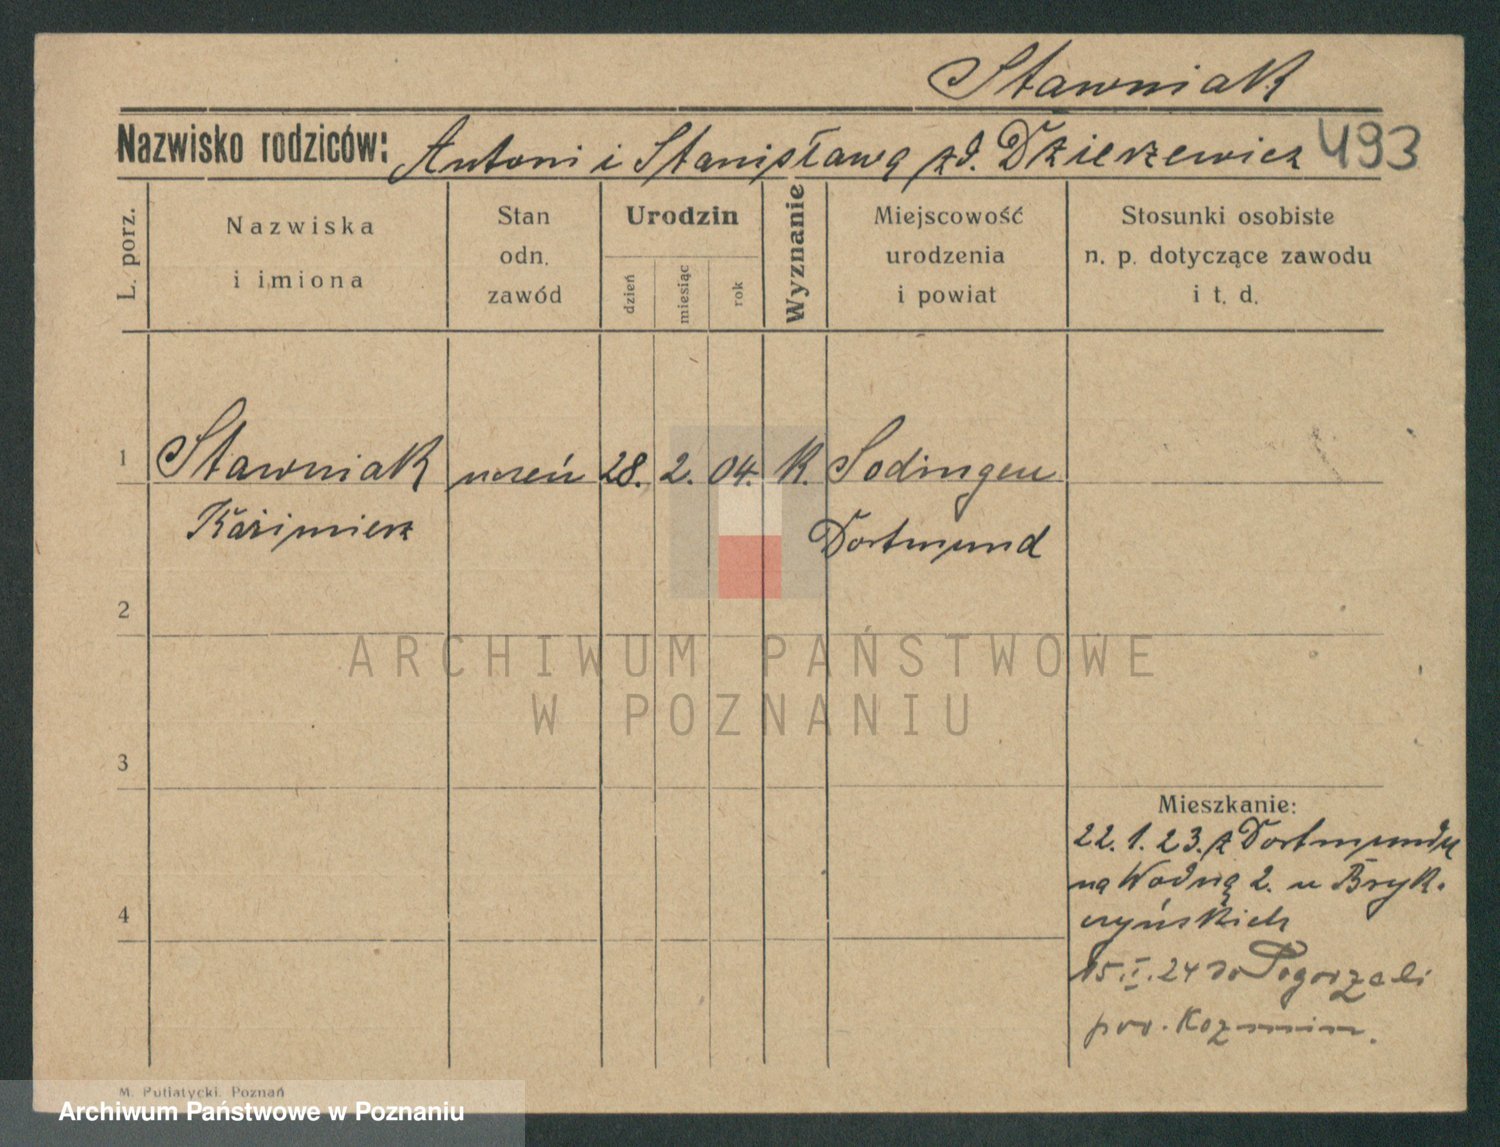 Stawniak
Nazwisko rodziców: Antoni i Stanisława zd. Dzierzewicz 493
L. porz.
Nazwiska
i imiona
Stan
odn.
zawód
Urodzin
dzień
miesiąc
rok
Wyznanie
Miejscowość
urodzenia
i powiat
Stosunki osobiste
n. p. dotyczące zawodu
i t. d.
1 Stawniak uczeń 28. 2. 04. K. Sodingen
Kazimierz Dortmund
2
ARCHIWUM PAŃSTWOWE
W POZNANIU
3
Mieszkanie:
22.1.23. z Dortmundu
na Wodną 2. u Bryk-
czyńskich
4
15.I.24 do Pogorzeli
pow. Kozmin.
M. Putiatycki, Poznań
Archiwum Państwowe w Poznaniu